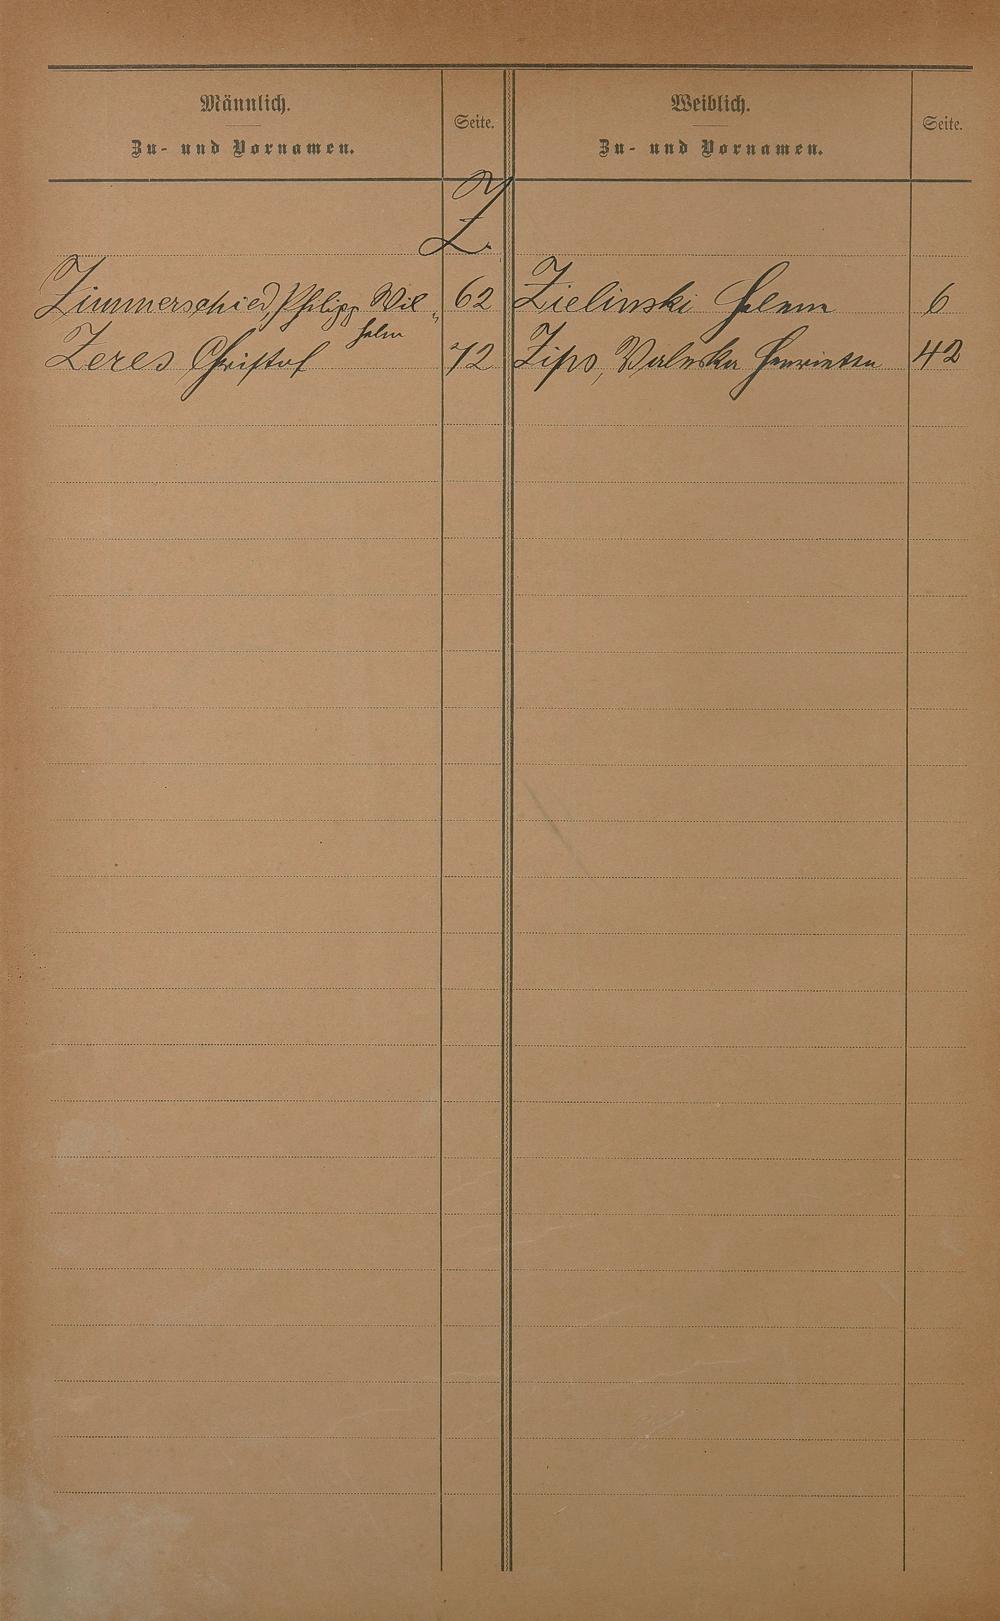 Männlich.
Zu- und Vornamen.
Seite.
Weiblich.
Zu- und Vornamen.
Seite.
Z.
Zimmerschied, Philipp Wil„ 62
helm
Zeres Christof 72
Zielinski Helene 6
Zips, Valeska Henriette 42